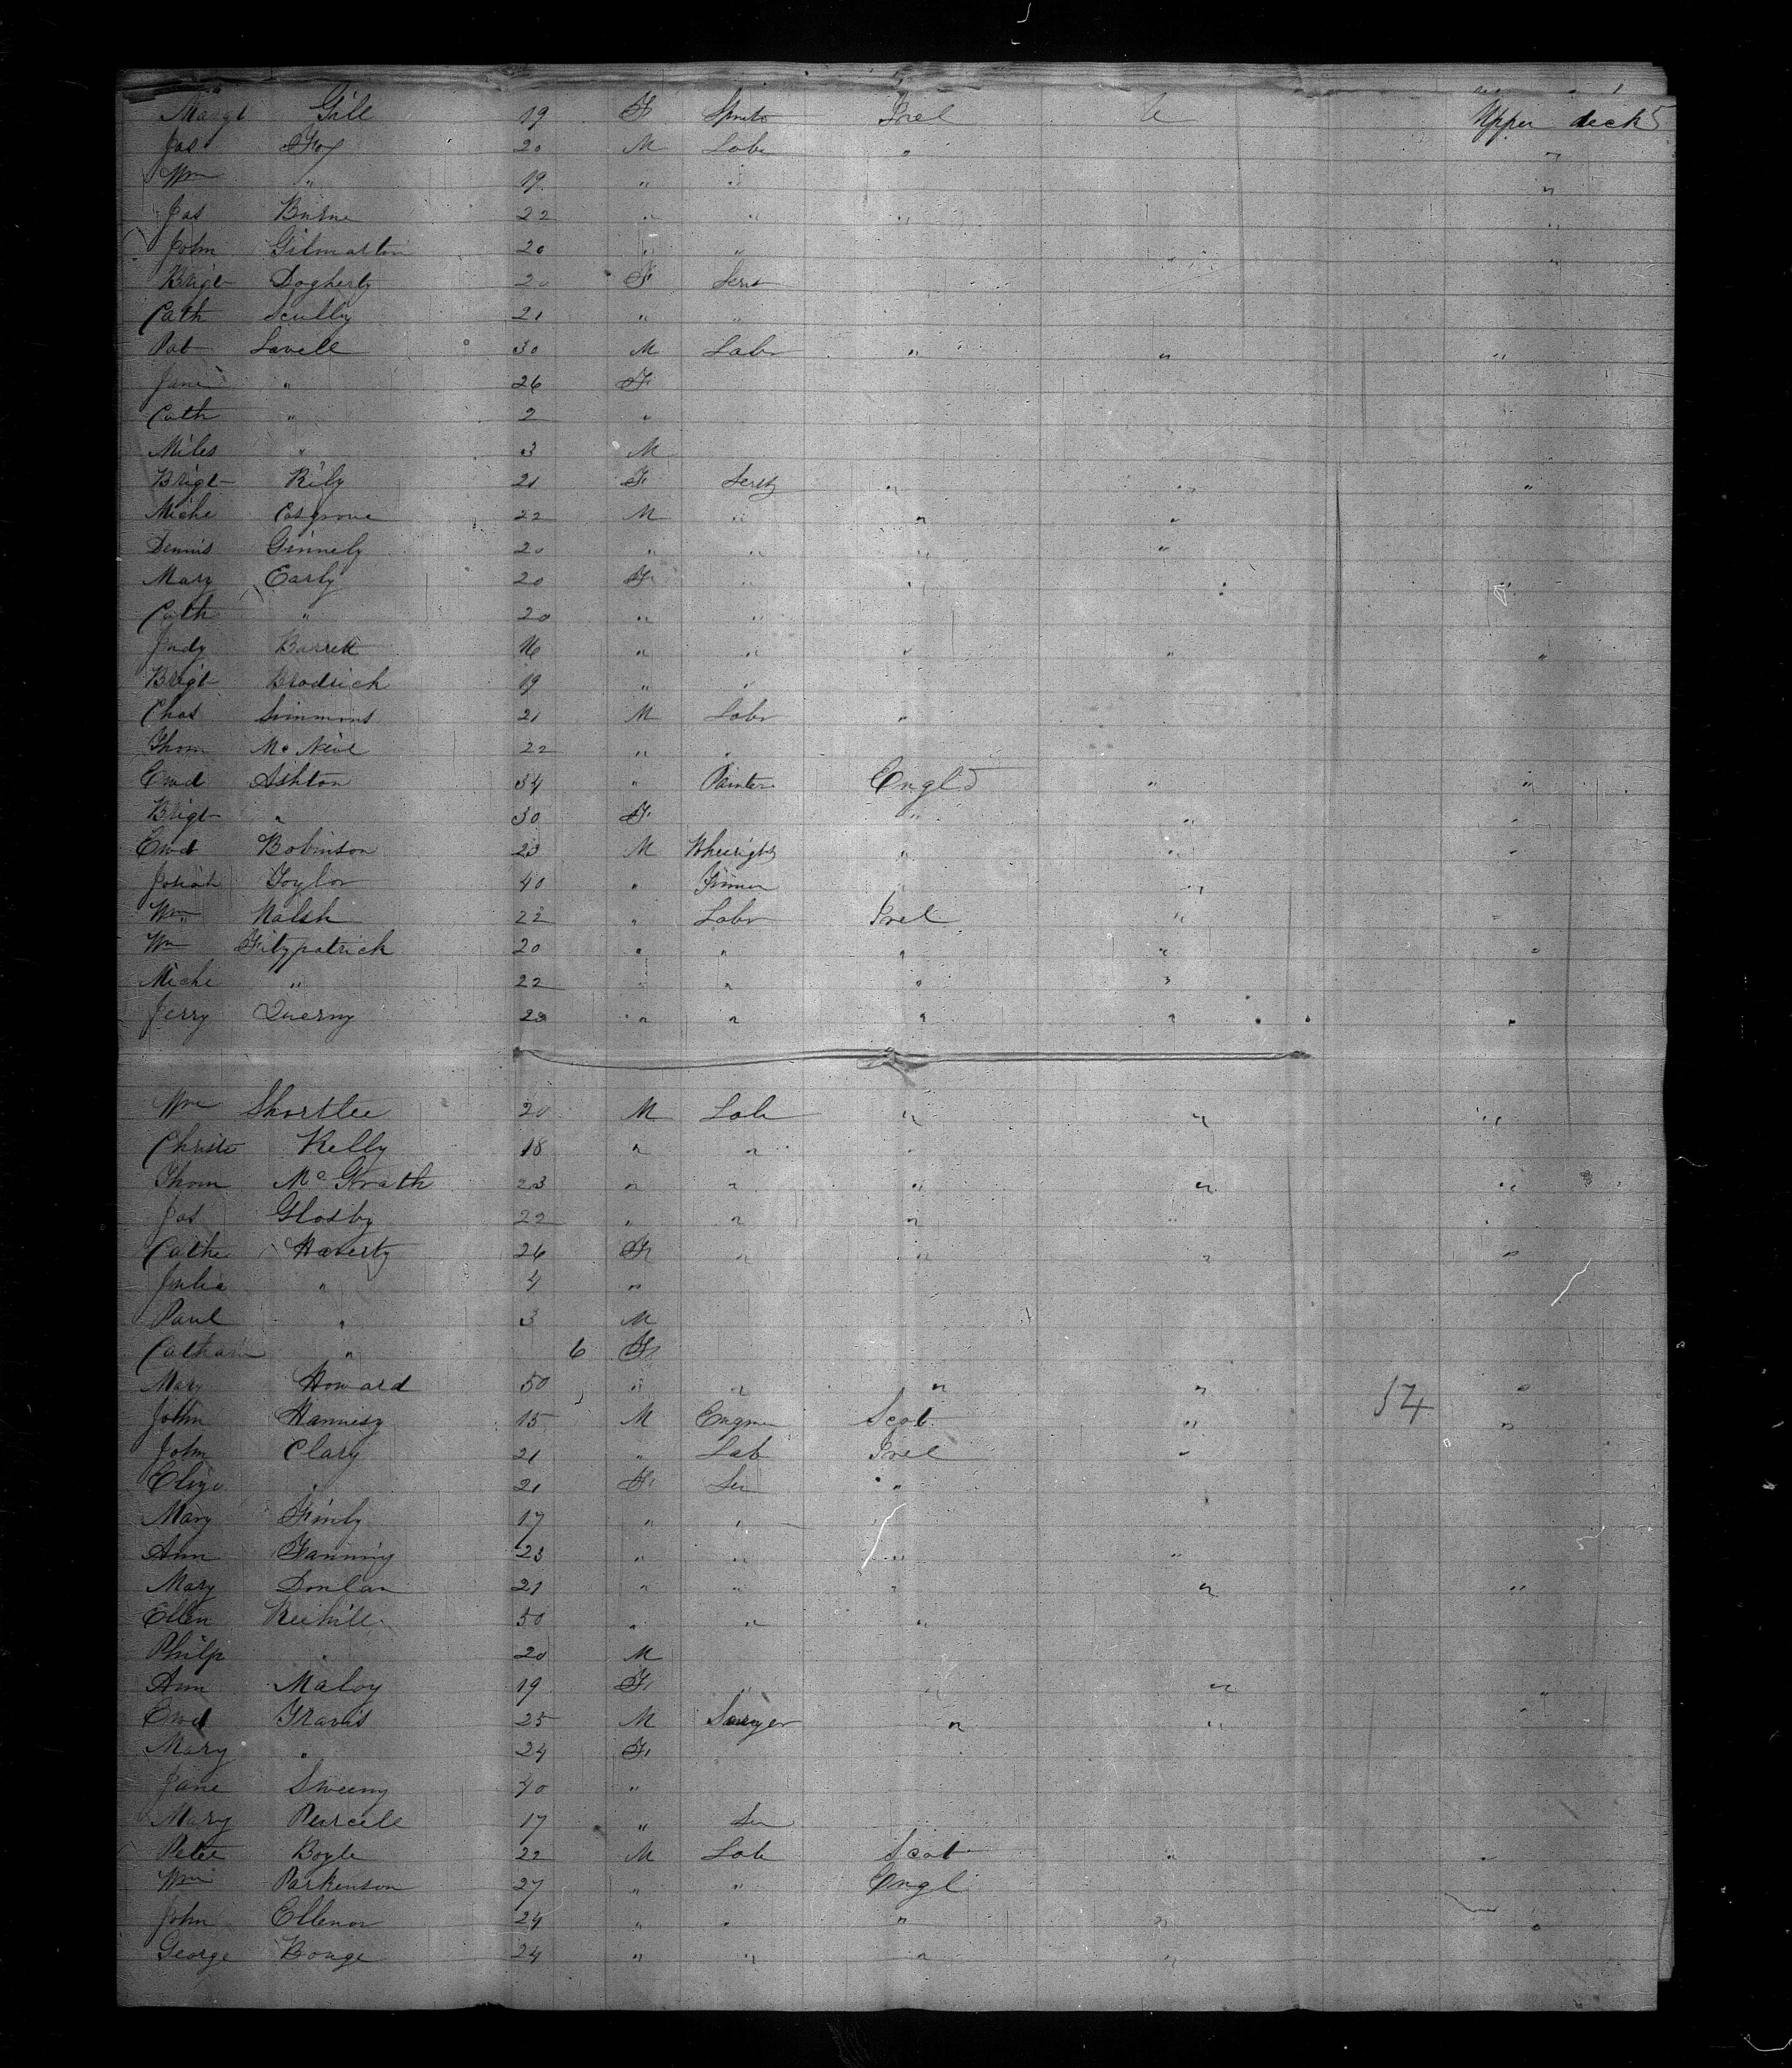 Margt Gill 19 F Spinstr Irel U Upper deck 5
Jas Foy 20 M Labr "
Wm " 19 " "
Jas Burne 22 " " "
John Gilmartin 20 " "
Brigt Dogherty 20 F Servt
Cath Scully 21 " "
Pat Lavell 30 M Labr " " "
Jane " 26 F
Cath " 2 "
Miles " 3 M
Brigt Rily 21 F Servt " " "
Miche Cosgrove 22 M " " "
Dennis Ginnely 20 " " " "
Mary Early 20 F " " "
Cath " 20 " "
Judy Barrett 16 " " " " "
Brigt Brodrick 19 " "
Chas Simmons 21 M Labr "
Thom McNeil 22 " "
Ewd Ashton 34 " Painter Engld " "
Brigt " 30 F " " "
Ewd Robinson 23 M Wheelright " " "
Josiah Taylor 40 " "
Wm Walsh 22 " Labr Irel " "
Wm Fitzpatrick 20 " " " " "
Miche " 22 " " " "
Jerry 23 " " " " "
Wm Shortlee 20 M Lab " " "
Christo Kelly 18 " " "
Thom McGrath 23 " " " " "
Jas Glosby 22 " " " " "
Cathe Haverty 26 F " " " "
Julia " 4 "
Paul " 3 M
Catharin " 6 F
Mary Howard 50 " " " " "
John Hannesy 15 M Engm Scot " 54 "
John Clary 21 " Lab Irel "
Eliza " 21 F Ser "
Mary Finly 17 " " "
Ann Fanning 23 " " " "
Mary Donlan 21 " " " " "
Ellen Reihill 50 " " "
Philp " 20 M
Ann Maloy 19 F " " " "
Ewd Travis 25 M Sawyer " " "
Mary " 24 F
Jane Sweeny 40 "
Mary Purcell 17 " Ser
Peter Boyle 22 M Lab Scot " "
Wm Parkenson 27 " " Engl
John Ellenor 24 " " " " "
George Bouge 24 " " " "